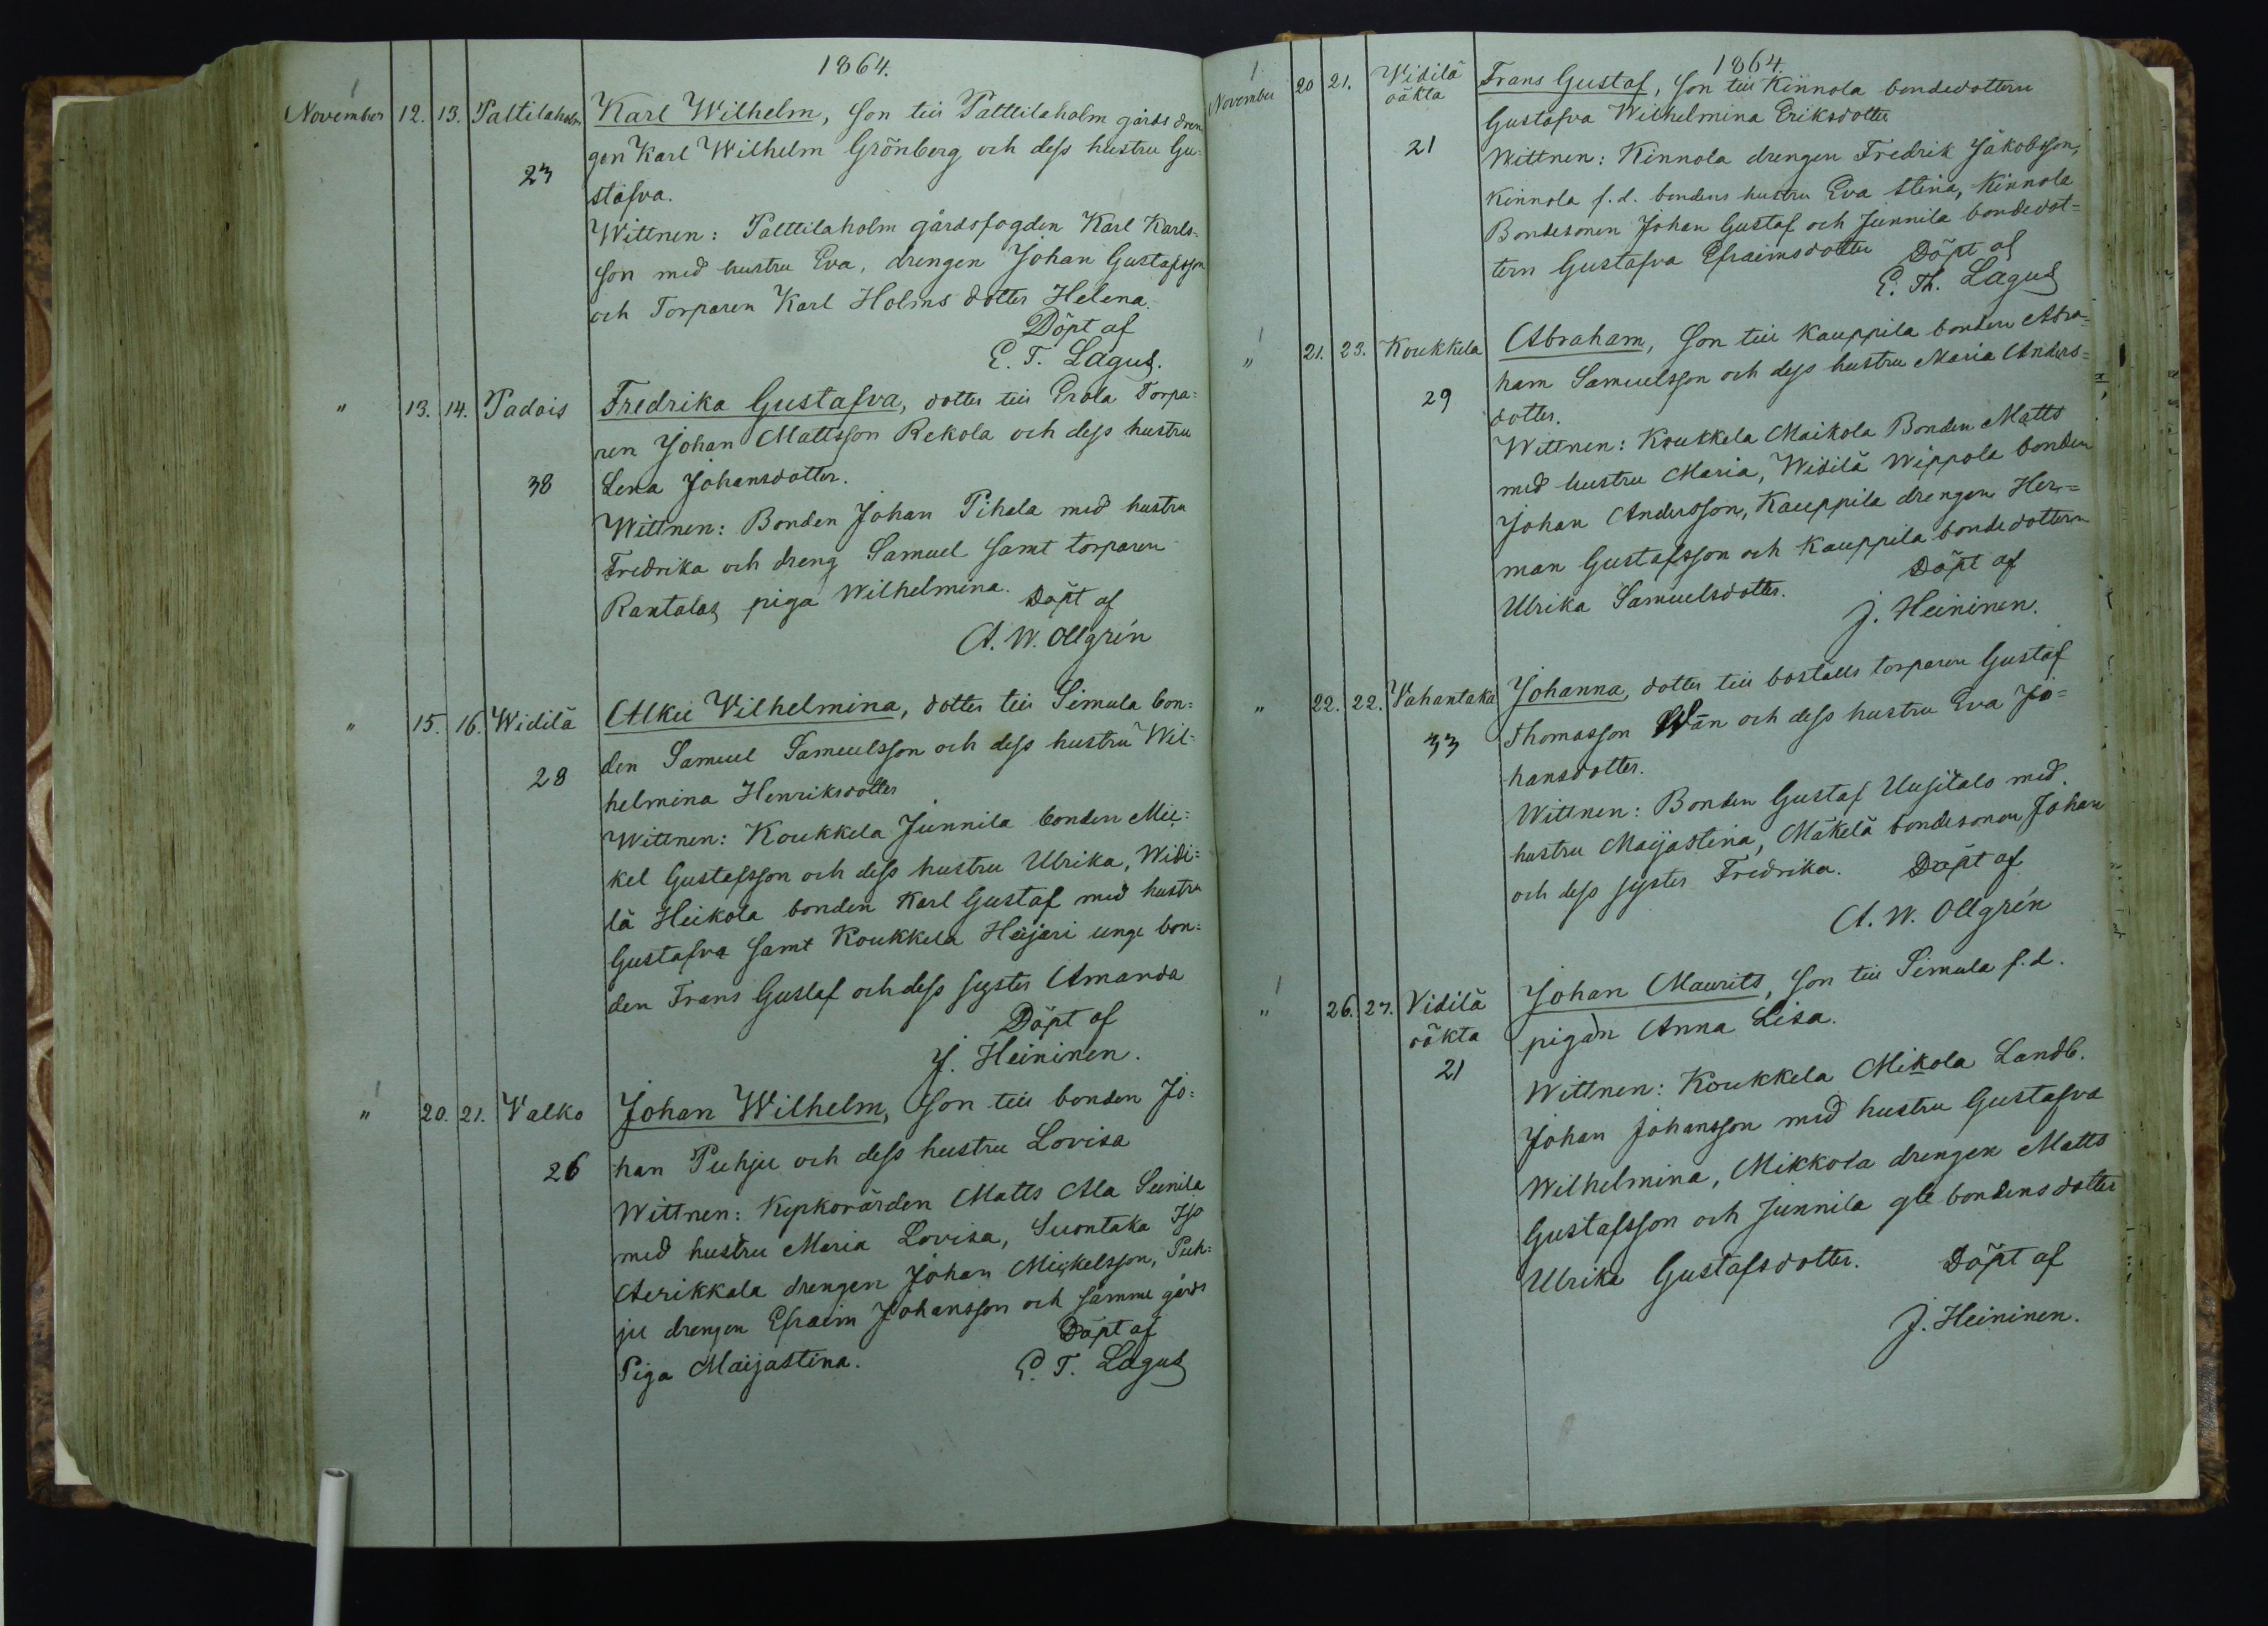 1864.
November 12. 13. Paltilaholm Karl Wilhelm, Son till Palttilaholm gårds dren
gen Karl Wilhelm Grönberg och dess hustru Gu-
23
stafva.
Wittnen: Palttilaholm gårdsfogden Karl Karls-
son med hustru Eva, drengen Johan Gustafsson
och Torparen Karl Holms dotter Helena.
Döpt af
E. T. Lagus.
" 13. 14. Padois Fredrika Gustafva, dotter till Erola Torpa-
ren Johan Mattsson Rekola och dess hustru
38 Lena Johansdotter.
Wittnen: Bonden Johan Pihala med hustru
Fredrika och dreng Samuel samt torparen
Rantalas piga Wilhelmina. Döpt af
A. W. Ollgrén
" 15. 16. Widilä Alkii Vilhelmina, dotter till Simula bon-
den Samuel Samuelsson och dess hustru Wil-
28 helmina Henriksdotter
Wittnen: Koukkela Junnila bonden Mic-
kel Gustafsson och dess hustru Ulrika, Widi-
lä Heikola bonden Karl Gustaf med hustru
Gustafva samt Koukkela Heijari unge bon-
den Frans Gustaf och dess syster Amanda
Döpt af
J. Heininen.
" 20. 21. Valko Johan Wilhelm, Son till bonden Jo-
26 han Puhju och dess hustru Lovisa
Wittnen: Kyrkovärden Matts Ala Seinila
med hustru Maria Lovisa, Suontaka Iso
Aerikkala drengen Johan Mickelsson, Puh-
ju drengen Efraim Johansson och samme gårds
Piga Maijastina. Döpt af
E. T. Lagus
1864.
November 20 21. Widilä Frans Gustaf, Son till Kinnola bondedottern
oäkta Gustafva Wilhelmina Eriksdotter
21 Wittnen: Kinnola drengen Fredrik Jakobsson,
Kinnola f.d. bondens hustru Eva Stina, Kinnola
Bondesonen Johan Gustaf och Junnila bondedot-
tern Gustafva Efraimsdotter Döpt af
E. Th. Lagus
" 21. 23. Koukkela Abraham, Son till Kauppila bonden Abra-
ham Samuelsson och dess hustru Maria Anders-
29 dotter.
Wittnen: Koukkela Maikola Bonden Matts
med hustru Maria, Widilä Wippola bonden
Johan Andersson, Kauppila drengen Her-
man Gustafsson och Kauppila bondedottern
Ulrika Samuelsdotter. Döpt af
J. Heininen.
" 22. 22. Vahantaka Johanna, dotter till boställs torparen Gustaf
33 Thomasson Wän och dess hustru Eva Jo-
hansdotter.
Wittnen: Bonden Gustaf Uusitalo med
hustru Maijastina, Mäkelä bondesonen Johan
och dess syster Fredrika. Döpt af
A. W. Ollgrén
" 26. 27. Vidilä Johan Maurits, Son till Simula f.d.
oäkta pigan Anna Lisa.
21
Wittnen: Koukkela Mikola Landb.
Johan Johansson med hustru Gustafva
Wilhelmina, Mikkola drengen Matts
Gustafsson och Junnila gle bondens dotter
Ulrika Gustafsdotter. Döpt af
J. Heininen.